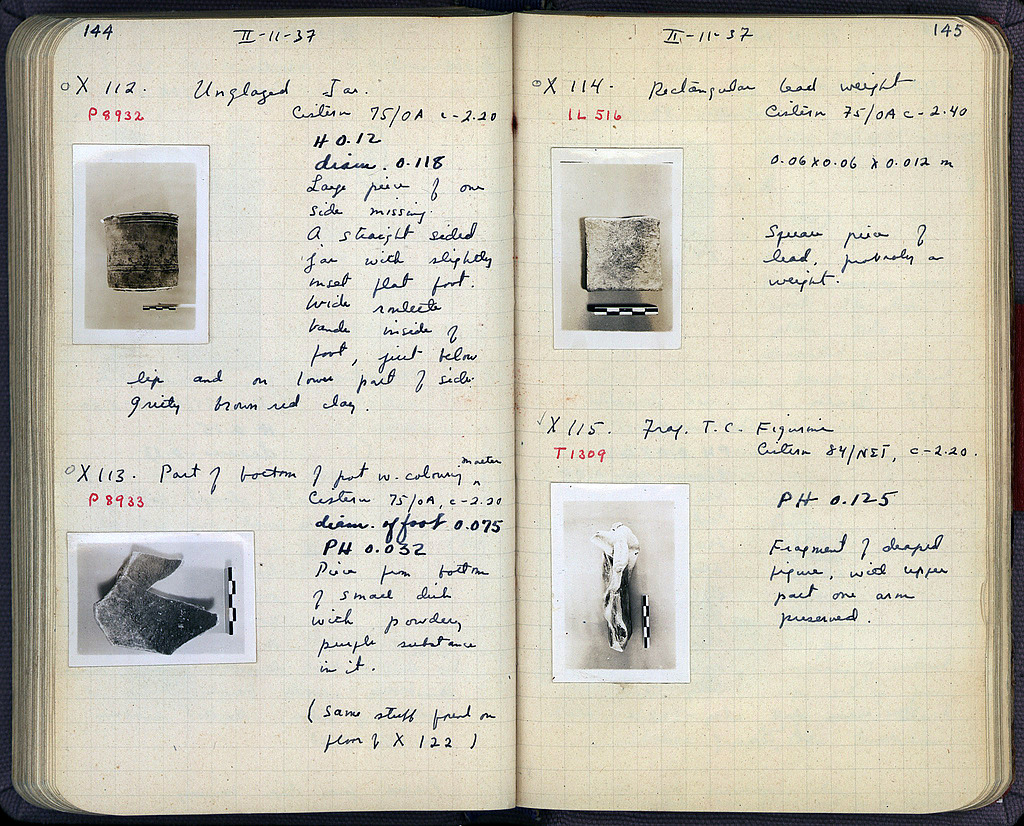 144
II-11-37
X 112. Unglazed Jar.
P 8932
Cistern 75/OA c-2.20
H 0.12
diam. 0.118
Large piece of one
side missing.
A straight sided
jar with slightly
inset flat foot.
Wide roulette
bands inside of
foot, just below
lip and on lower part of side.
Gritty brown red clay.
X 113. Part of bottom of pot w. colouring matter
P 8933
Cistern 75/OA, c-2.20
diam. of foot 0.075
PH 0.032
Piece from bottom
of small dish
with powdery
purple substance
in it.
(Same stuff found on
floor of X 122)
145
II-11-37
X 114. Rectangular lead weight
IL 516
Cistern 75/OA c-2.40
0.06 x 0.06 x 0.012 m
Square piece of
lead, probably a
weight.
X 115. Frag. T.C. Figurine
T 1309
Cistern 84/NΣT, c-2.20.
PH 0.125
Fragment of draped
figure, with upper
part one arm
preserved.